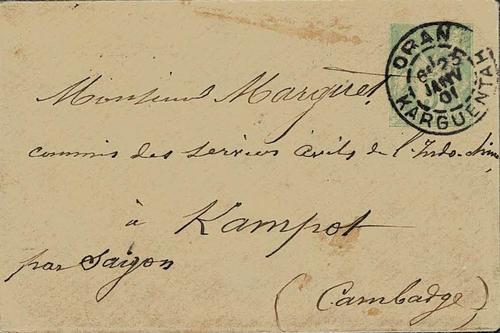 ORAN
KARGUENTAH
25
JANV
01
Monsieur Marguet
commis des services civils de l'Indo-chine
à Kampot
par Saigon
(Cambadge)